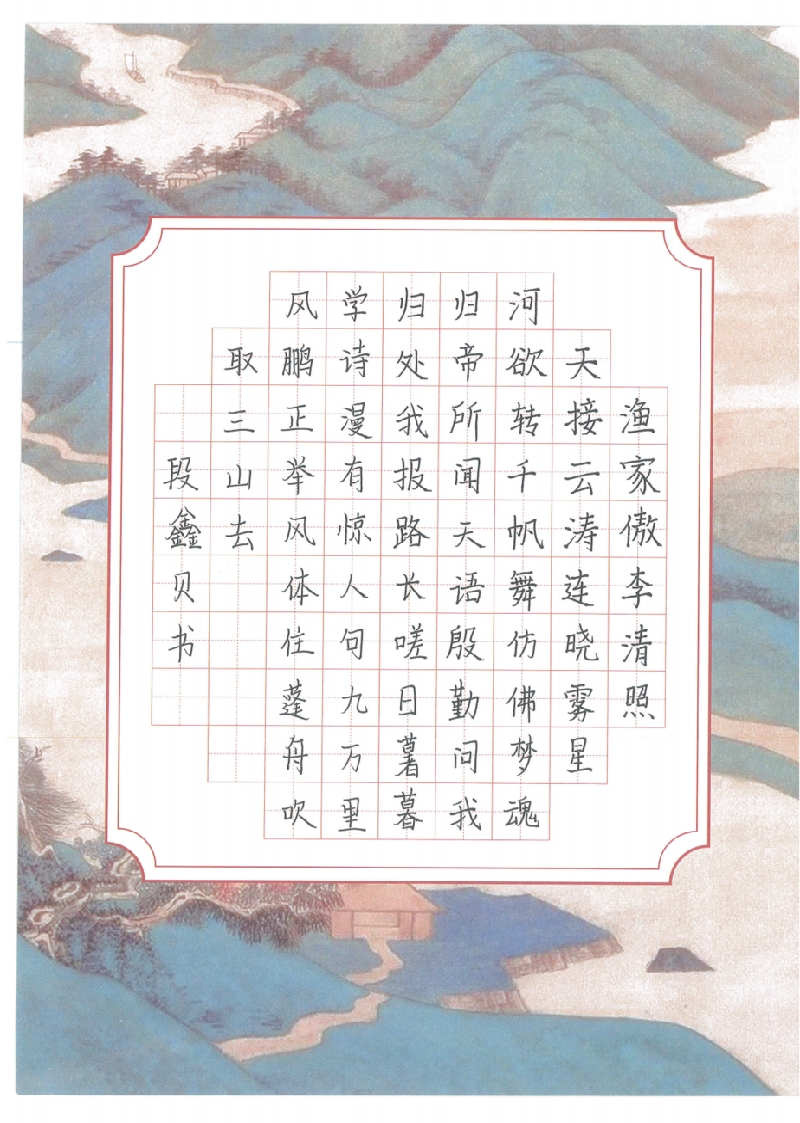 渔家傲李清照
天接云涛连晓雾星
河欲转千帆舞仿佛梦魂
归帝所闻天语殷勤问我
归处我报路长嗟日暮
学诗漫有惊人句九万里
风鹏正举风体住蓬舟吹
取三山去
段鑫贝书